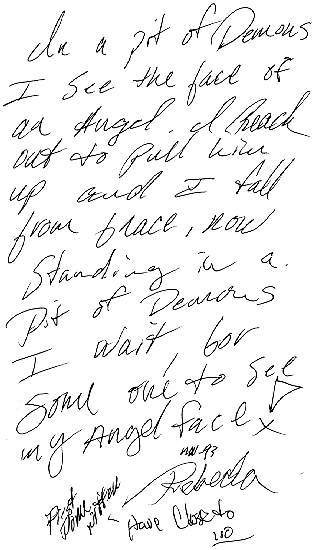 In a pit of Demons
I see the face of
an Angel. I Reach
out to pull him
up and I fall
from grace, now
Standing in a.
Pit of Demons
I wait, for
Some one to see
my Angel face x
Nov 93
Rebecca
First
Have Close to
100